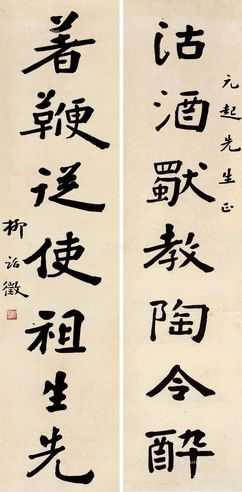 元起先生正
沽酒獨教陶令醉
著鞭從使祖生先
柳詒徵